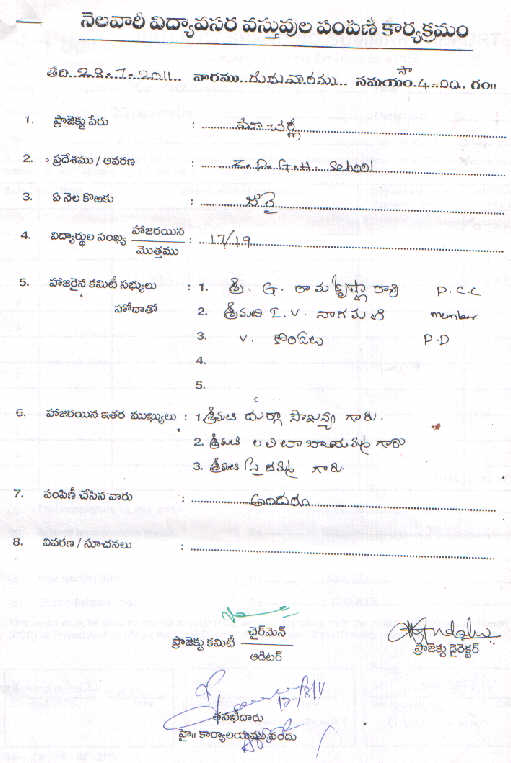 నెలవారీ విద్యావసర వస్తువుల పంపిణీ కార్యక్రమం
తేది 28.7.2011 వారము గురువారము సమయం సా 4.00 గం॥
1. ప్రాజెక్టు పేరు :
2. ప్రదేశము / ఆవరణ : Z.P.G.H. School
3. ఏ నెల కొఱకు : జూలై
4. విద్యార్థుల సంఖ్య హాజరయిన / మొత్తము : 17/19
5. హాజరైన కమిటీ సభ్యులు : 1. శ్రీ. G. రామకృష్ణా P.C.C
హోదాతో 2. శ్రీమతి I.V. నాగమణి member
3. V. కొండలు P.D
4.
5.
6. హాజరయిన ఇతర ముఖ్యులు : 1. శ్రీమతి దుర్గా గారు.
2. శ్రీమతి గారు
3. శ్రీమతి గారు
7. పంపిణీ చేసిన వారు : అందరూ
8. వివరణ / సూచనలు :
ప్రాజెక్టు కమిటీ చైర్మెన్ / ఆడిటర్
ప్రాజెక్టు డైరెక్టర్
తనిఖీదారు
హై॥ కార్యాలయమునందు